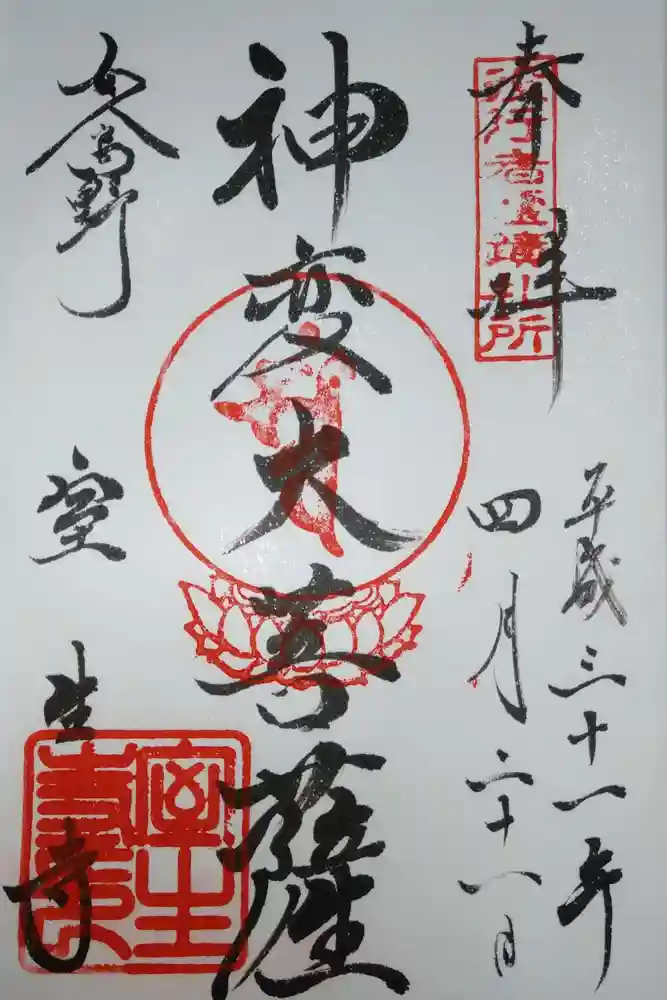 奉拝
役行者霊蹟札所
平成三十一年
四月二十八日
神変大菩薩
女人高野
室生寺
室生寺印